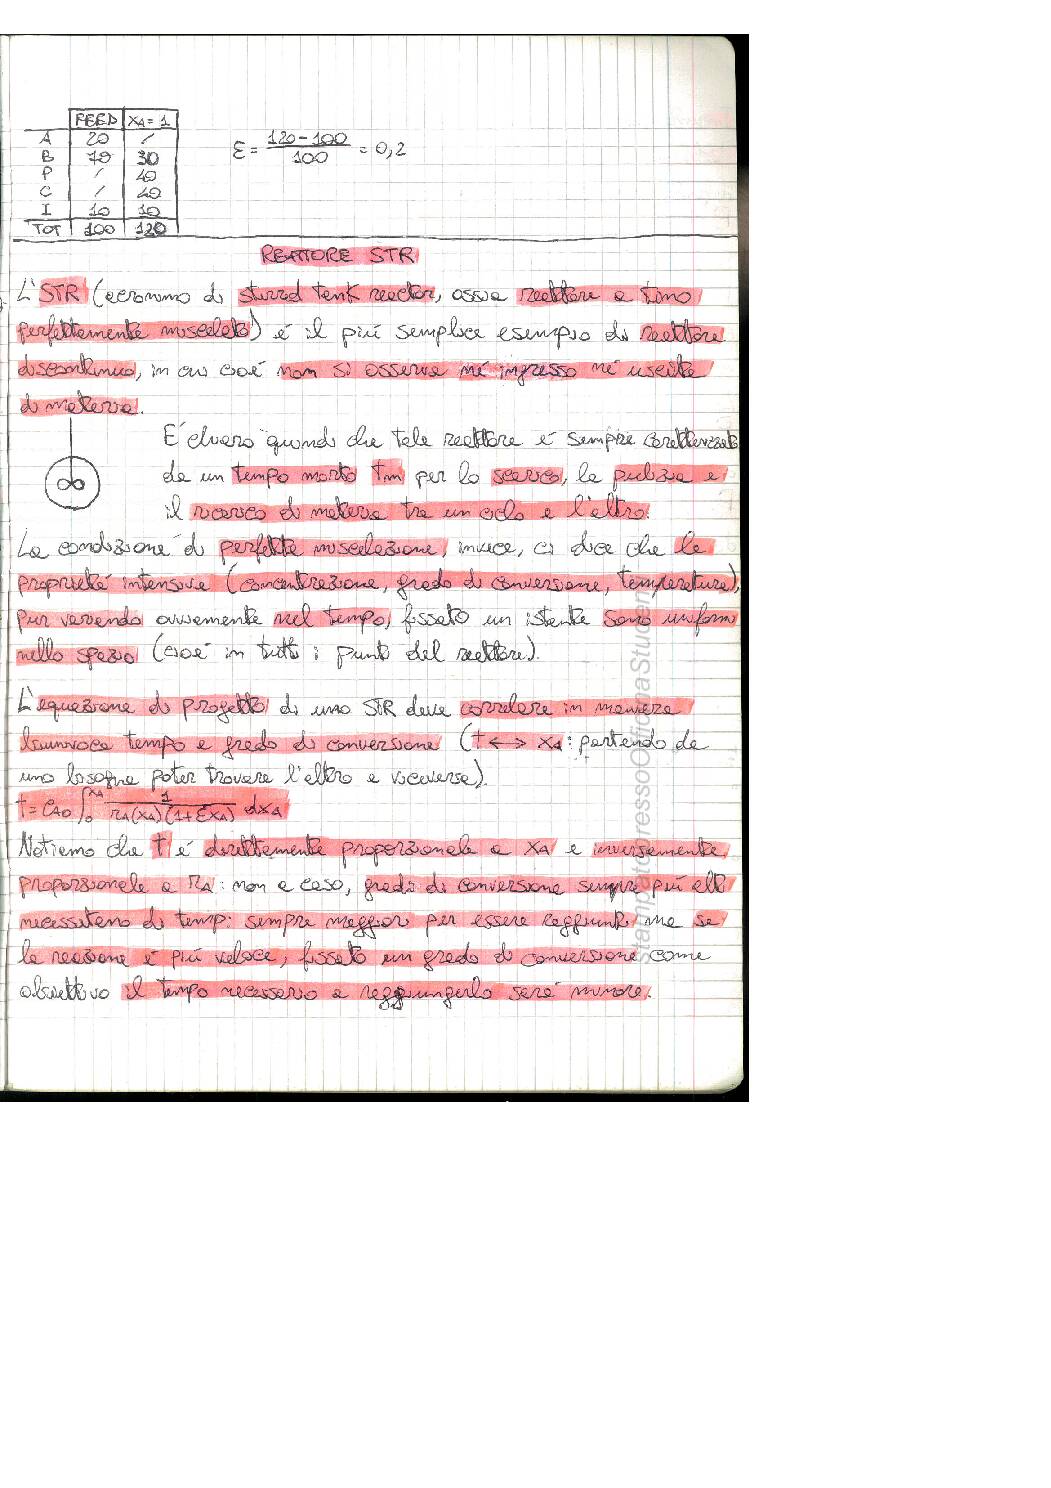 FEED XA = 1
A 20 /
B 70 30
P / 40
C / 40
I 10 10
TOT 100 120
ε = (120 - 100) / 100 = 0,2
REATTORE STR
L'STR (acronimo di stirred tank reactor, ossia reattore a tino
perfettamente miscelato) è il più semplice esempio di reattore
discontinuo, in cui cioè non si osserva né ingresso né uscita
di materia.
E' chiaro quindi che tale reattore è sempre caratterizzato
da un tempo morto tm per lo scarico, la pulizia e
il ricarico di materia tra un ciclo e l'altro.
La condizione di perfetta miscelazione, invece, ci dice che le
proprietà intensive (concentrazione, grado di conversione, temperatura),
pur variando ovviamente nel tempo, fissato un istante sono uniformi
nello spazio (cioè in tutti i punti del reattore).
L'equazione di progetto di uno STR deve correlare in maniera
biunivoca tempo e grado di conversione (t ↔ XA: partendo da
uno bisogna poter trovare l'altro e viceversa).
t = CA0 ∫₀^XA 1 / (rA(XA)(1+εXA)) dXA
Notiamo che t è direttamente proporzionale a XA e inversamente
proporzionale a rA: non a caso, gradi di conversione sempre più alti
necessitano di tempi sempre maggiori per essere raggiunti ma se
la reazione è più veloce, fissato un grado di conversione come
obiettivo il tempo necessario a raggiungerlo sarà minore.
stampatopressoOfficinaStudenti